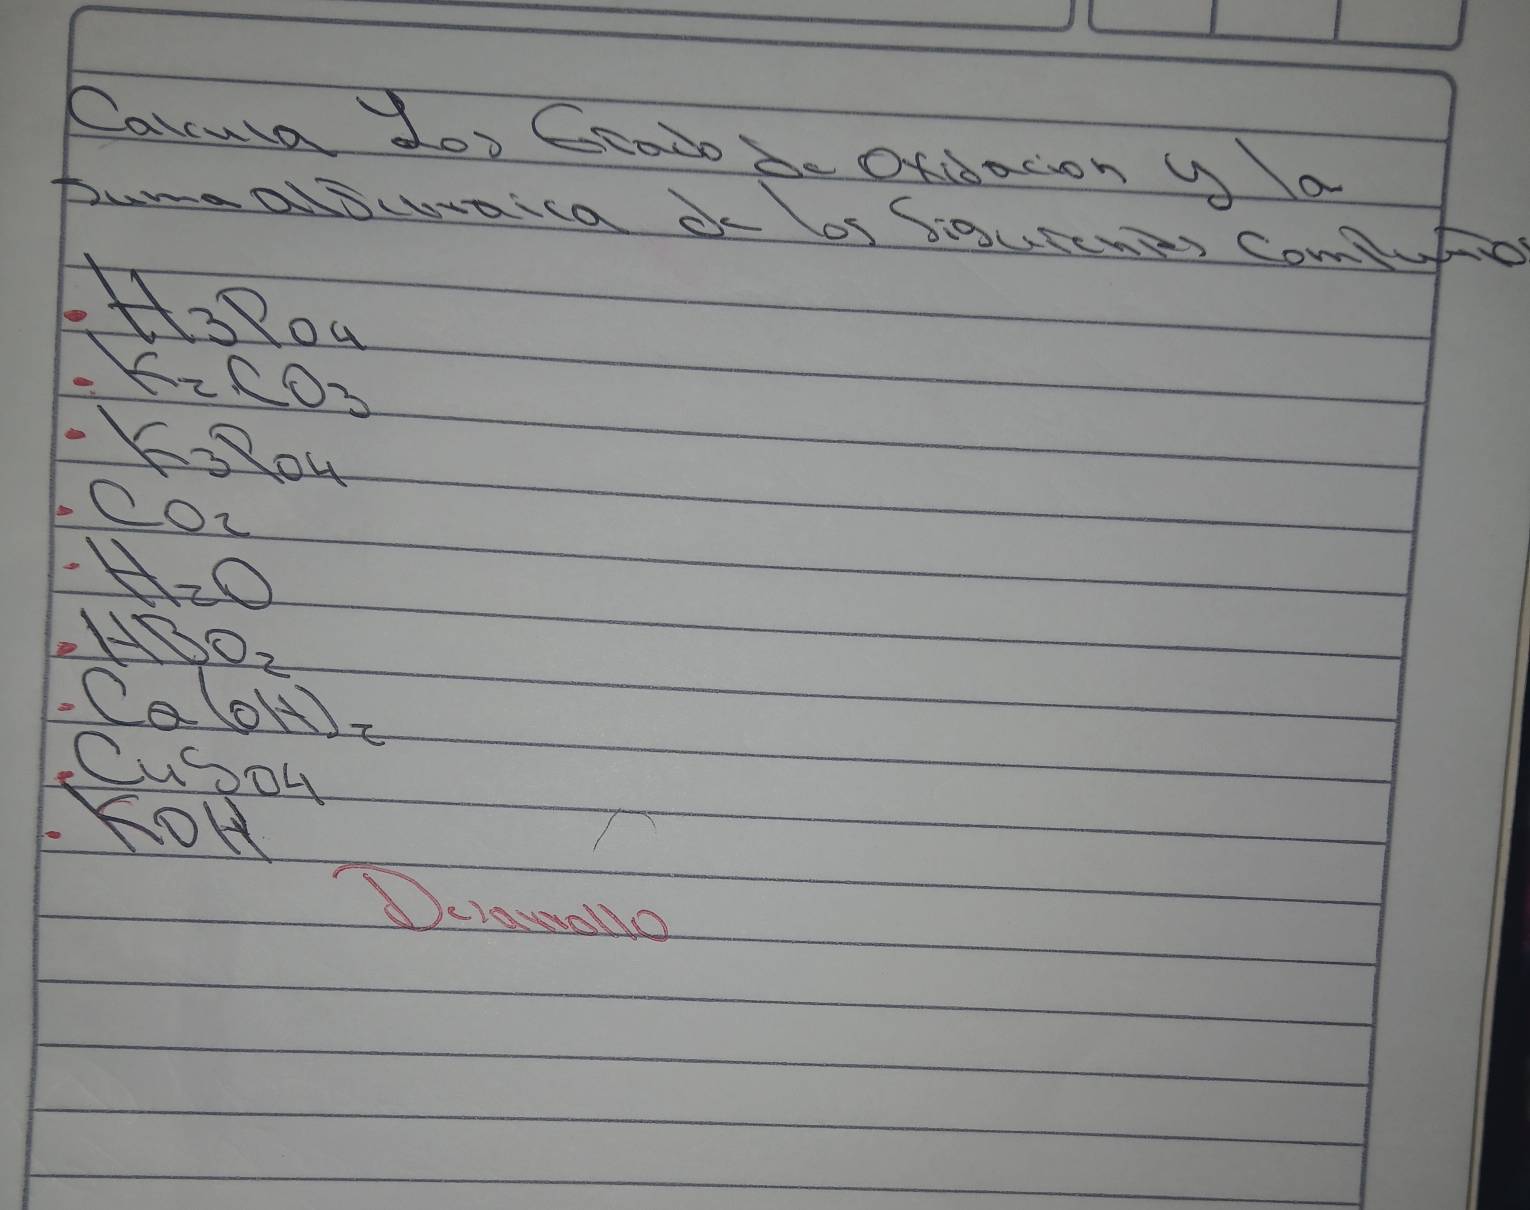 Calcula Los Grado de Oxidacion y la
suma algebraica de los Siguientes Compuestos
• H3PO4
• K2CO3
• K3PO4
• CO2
• H2O
• HBO2
• Ca(OH)2
• CuSO4
• KOH
Desarrollo